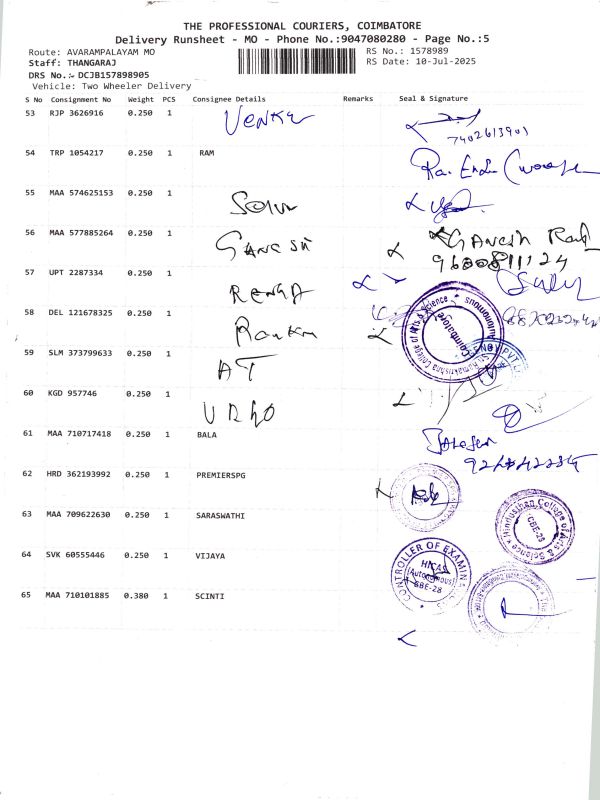 THE PROFESSIONAL COURIERS, COIMBATORE
Delivery Runsheet - MO - Phone No.:9047080280 - Page No.:5
Route: AVARAMPALAYAM MO RS No.: 1578989
Staff: THANGARAJ RS Date: 10-Jul-2025
DRS No.:- DCJB157898905
Vehicle: Two Wheeler Delivery
S No Consignment No Weight PCS Consignee Details Remarks Seal & Signature
53 RJP 3626916 0.250 1 Venku
7402613901
54 TRP 1054217 0.250 1 RAM
55 MAA 574625153 0.250 1
56 MAA 577885264 0.250 1 GANESH GANESH
9600811124
57 UPT 2287334 0.250 1 RENGA
58 DEL 121678325 0.250 1
59 SLM 373799633 0.250 1 AT
60 KGD 957746 0.250 1
61 MAA 710717418 0.250 1 BALA
62 HRD 362193992 0.250 1 PREMIERSPG
63 MAA 709622630 0.250 1 SARASWATHI
64 SVK 60555446 0.250 1 VIJAYA
65 MAA 710101885 0.380 1 SCINTI
Sri Ramakrishna College of Arts & Science
Autonomous
Coimbatore
Hindusthan College of Arts & Science
CBE-28
CONTROLLER OF EXAMIN
HICAS
(Autonomous)
CBE-28